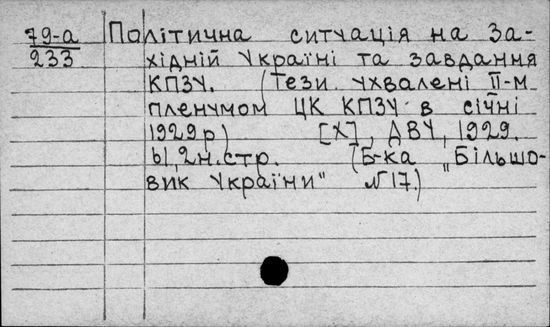 79-а Політична ситуація на За-
233 хідній Україні та завдання
КПЗУ. (Тези ухвалені II-м
пленумом ЦК КПЗУ в січні
1929 р) [Х], ДВУ, 1929.
61, 2 н. стр. (Б-ка "Більшо-
вик України" № 17.)